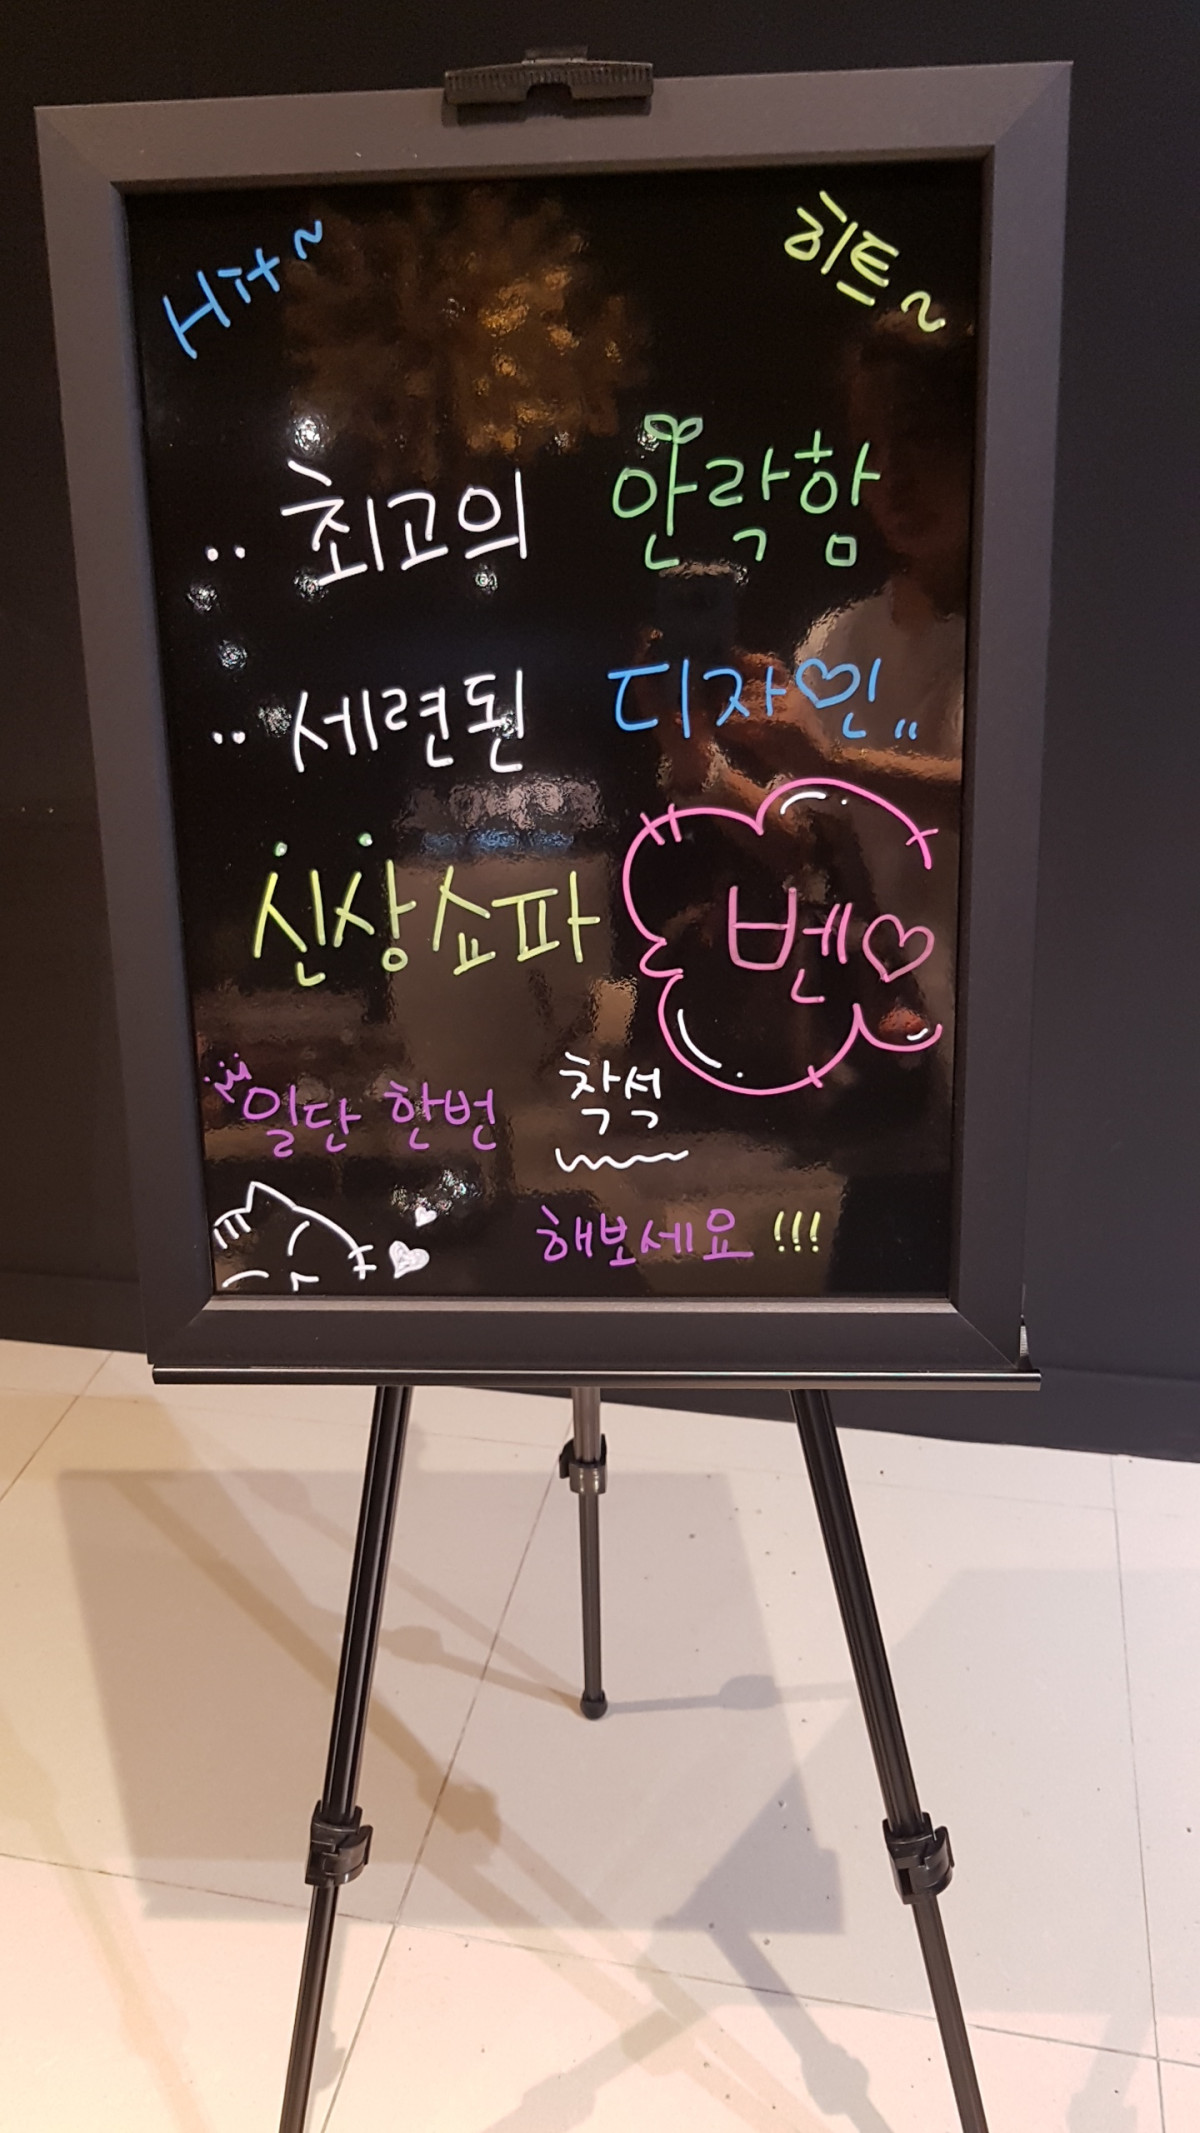 Hit~ 히트~
.. 최고의 안락함
.. 세련된 디자인..
신상쇼파 벤♡
일단 한번 착석
해보세요!!!